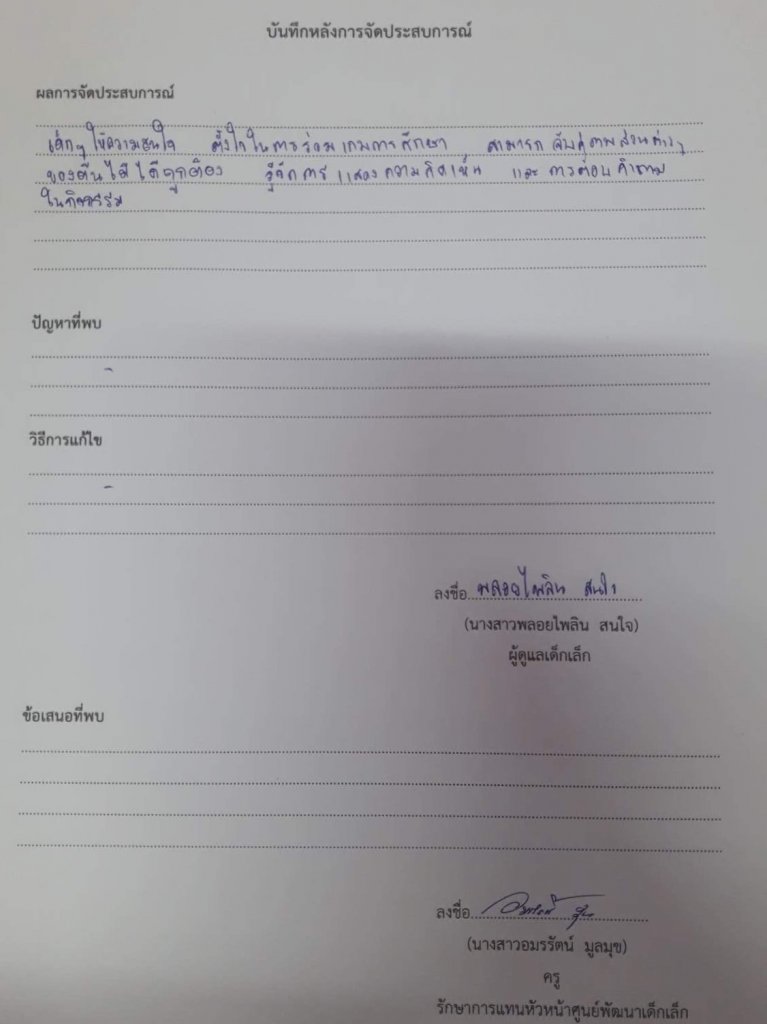 บันทึกหลังการจัดประสบการณ์
ผลการจัดประสบการณ์
เด็กๆ ให้ความสนใจ ตั้งใจในการร่วมเกมการศึกษา สามารถจับคู่ภาพส่วนต่างๆ
ของต้นไม้ได้ถูกต้อง รู้จักการแสดงความคิดเห็น และการตอบคำถาม
ในกิจกรรม
ปัญหาที่พบ
-
วิธีการแก้ไข
-
ลงชื่อ พลอยไพลิน สนใจ
(นางสาวพลอยไพลิน สนใจ)
ผู้ดูแลเด็กเล็ก
ข้อเสนอที่พบ
ลงชื่อ
(นางสาวอมรรัตน์ มูลมุข)
ครู
รักษาการแทนหัวหน้าศูนย์พัฒนาเด็กเล็ก